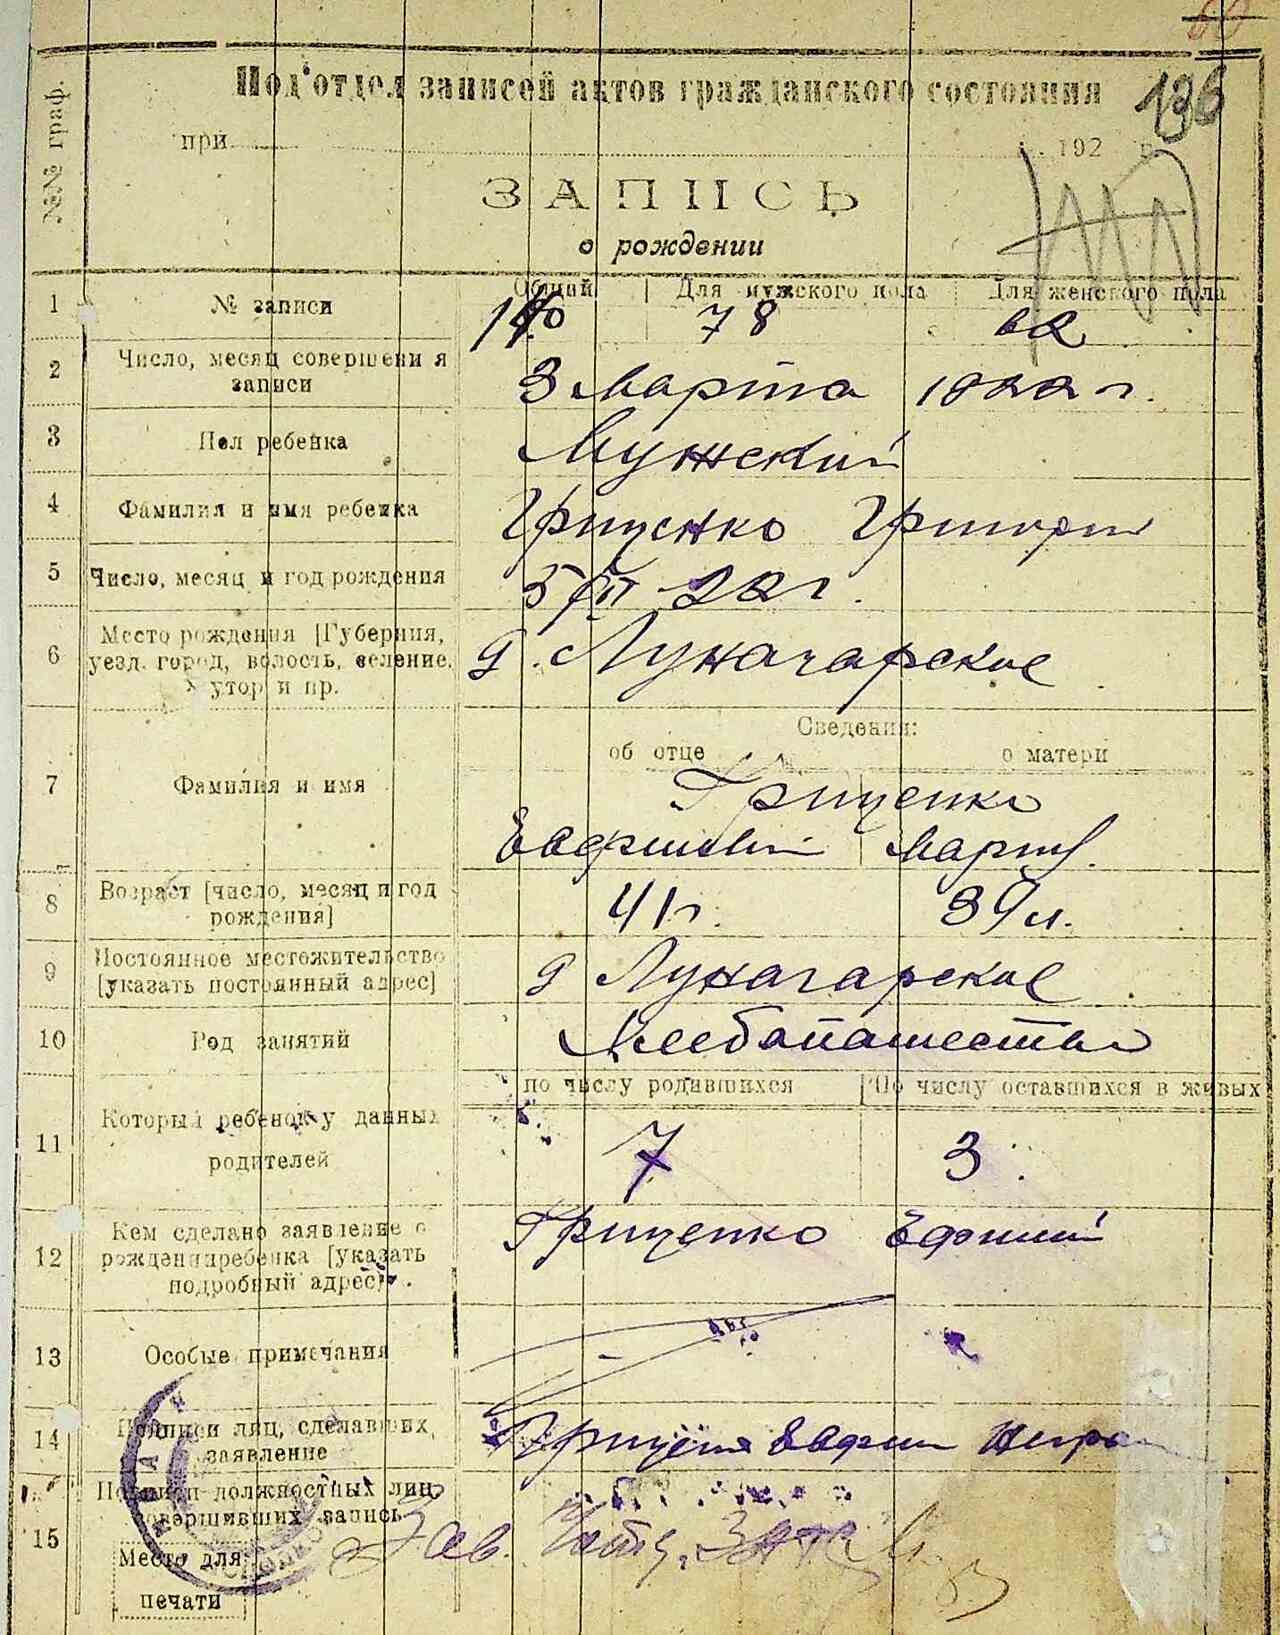 136
№№ граф.
Под'отдел записей актов гражданского состояния
при 192 г.
ЗАПИСЬ
о рождении
Общий Для мужского пола Для женского пола
1 № записи 140 78 62
2 Число, месяц совершения записи 3 Марта 1922 г.
3 Пол ребенка Мужской
4 Фамилия и имя ребенка Гриценко Григорий
5 Число, месяц и год рождения 5/II 22 г.
6 Место рождения [Губерния, уезд. город, волость, селение, хутор и пр. д. Луначарское
Сведения:
об отце о матери
7 Фамилия и имя Гриценко
Евфимий Мария
8 Возраст [число, месяц и год рождения] 41 г. 39 л.
9 Постоянное местожительство [указать постоянный адрес] д Луначарское
10 Род занятий Хлебопашество
по числу родившихся По числу оставшихся в живых
11 Который ребенок у данных родителей 7 3
12 Кем сделано заявление о рождении ребенка [указать подробный адрес]. Гриценко Ефимий
13 Особые примечания
14 Подписи лиц, сделавших заявление
15 Подписи должностных лиц, совершивших запись Зав.
Место для печати